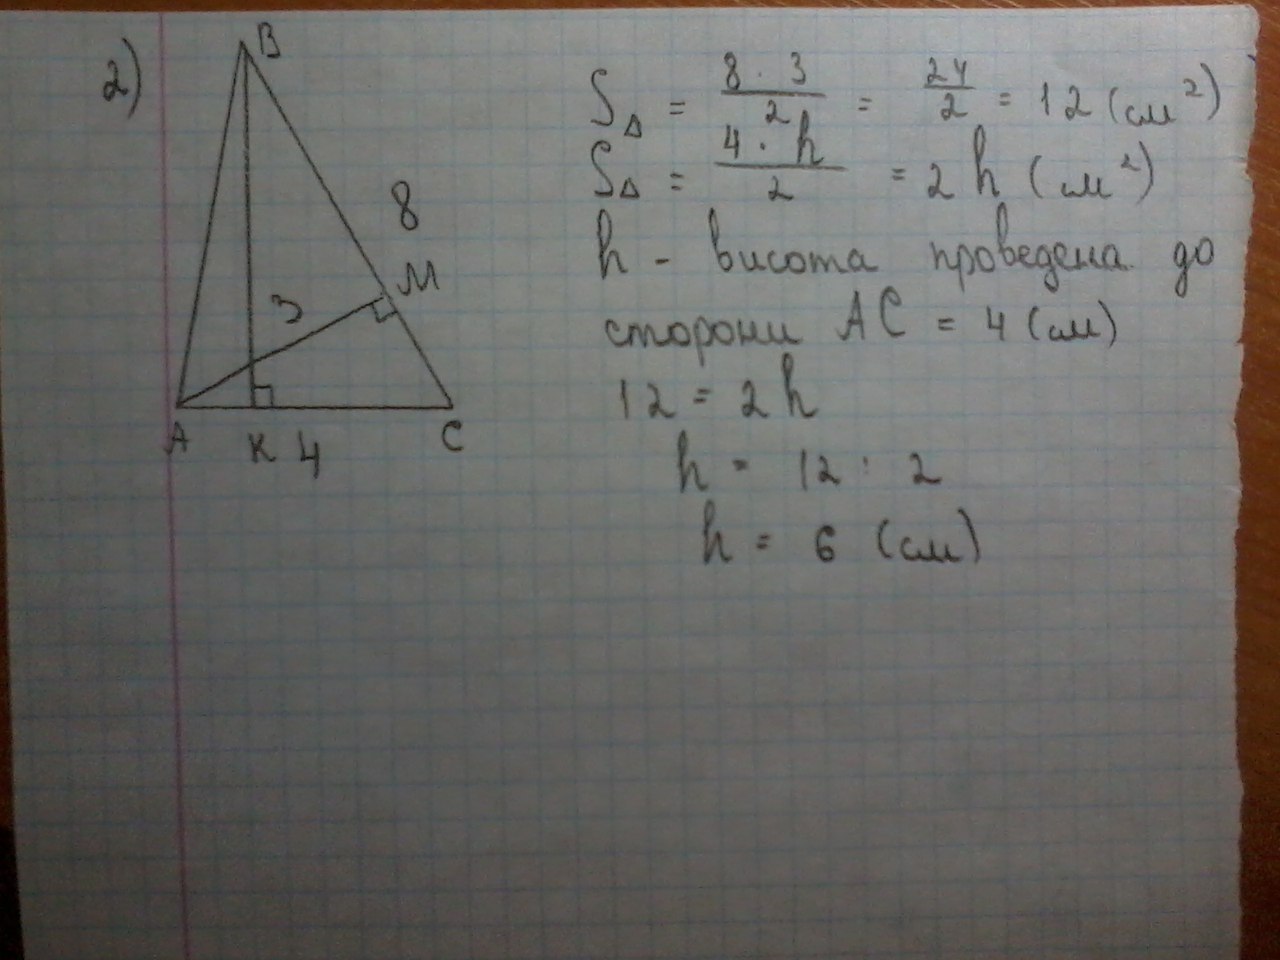 2)
B
8
M
3
A K 4 C
S△ = 8 · 3 / 2 = 24 / 2 = 12 (см²)
S△ = 4 · h / 2 = 2 h (см²)
h - висота проведена до
сторони AC = 4 (см)
12 = 2 h
h = 12 : 2
h = 6 (см)